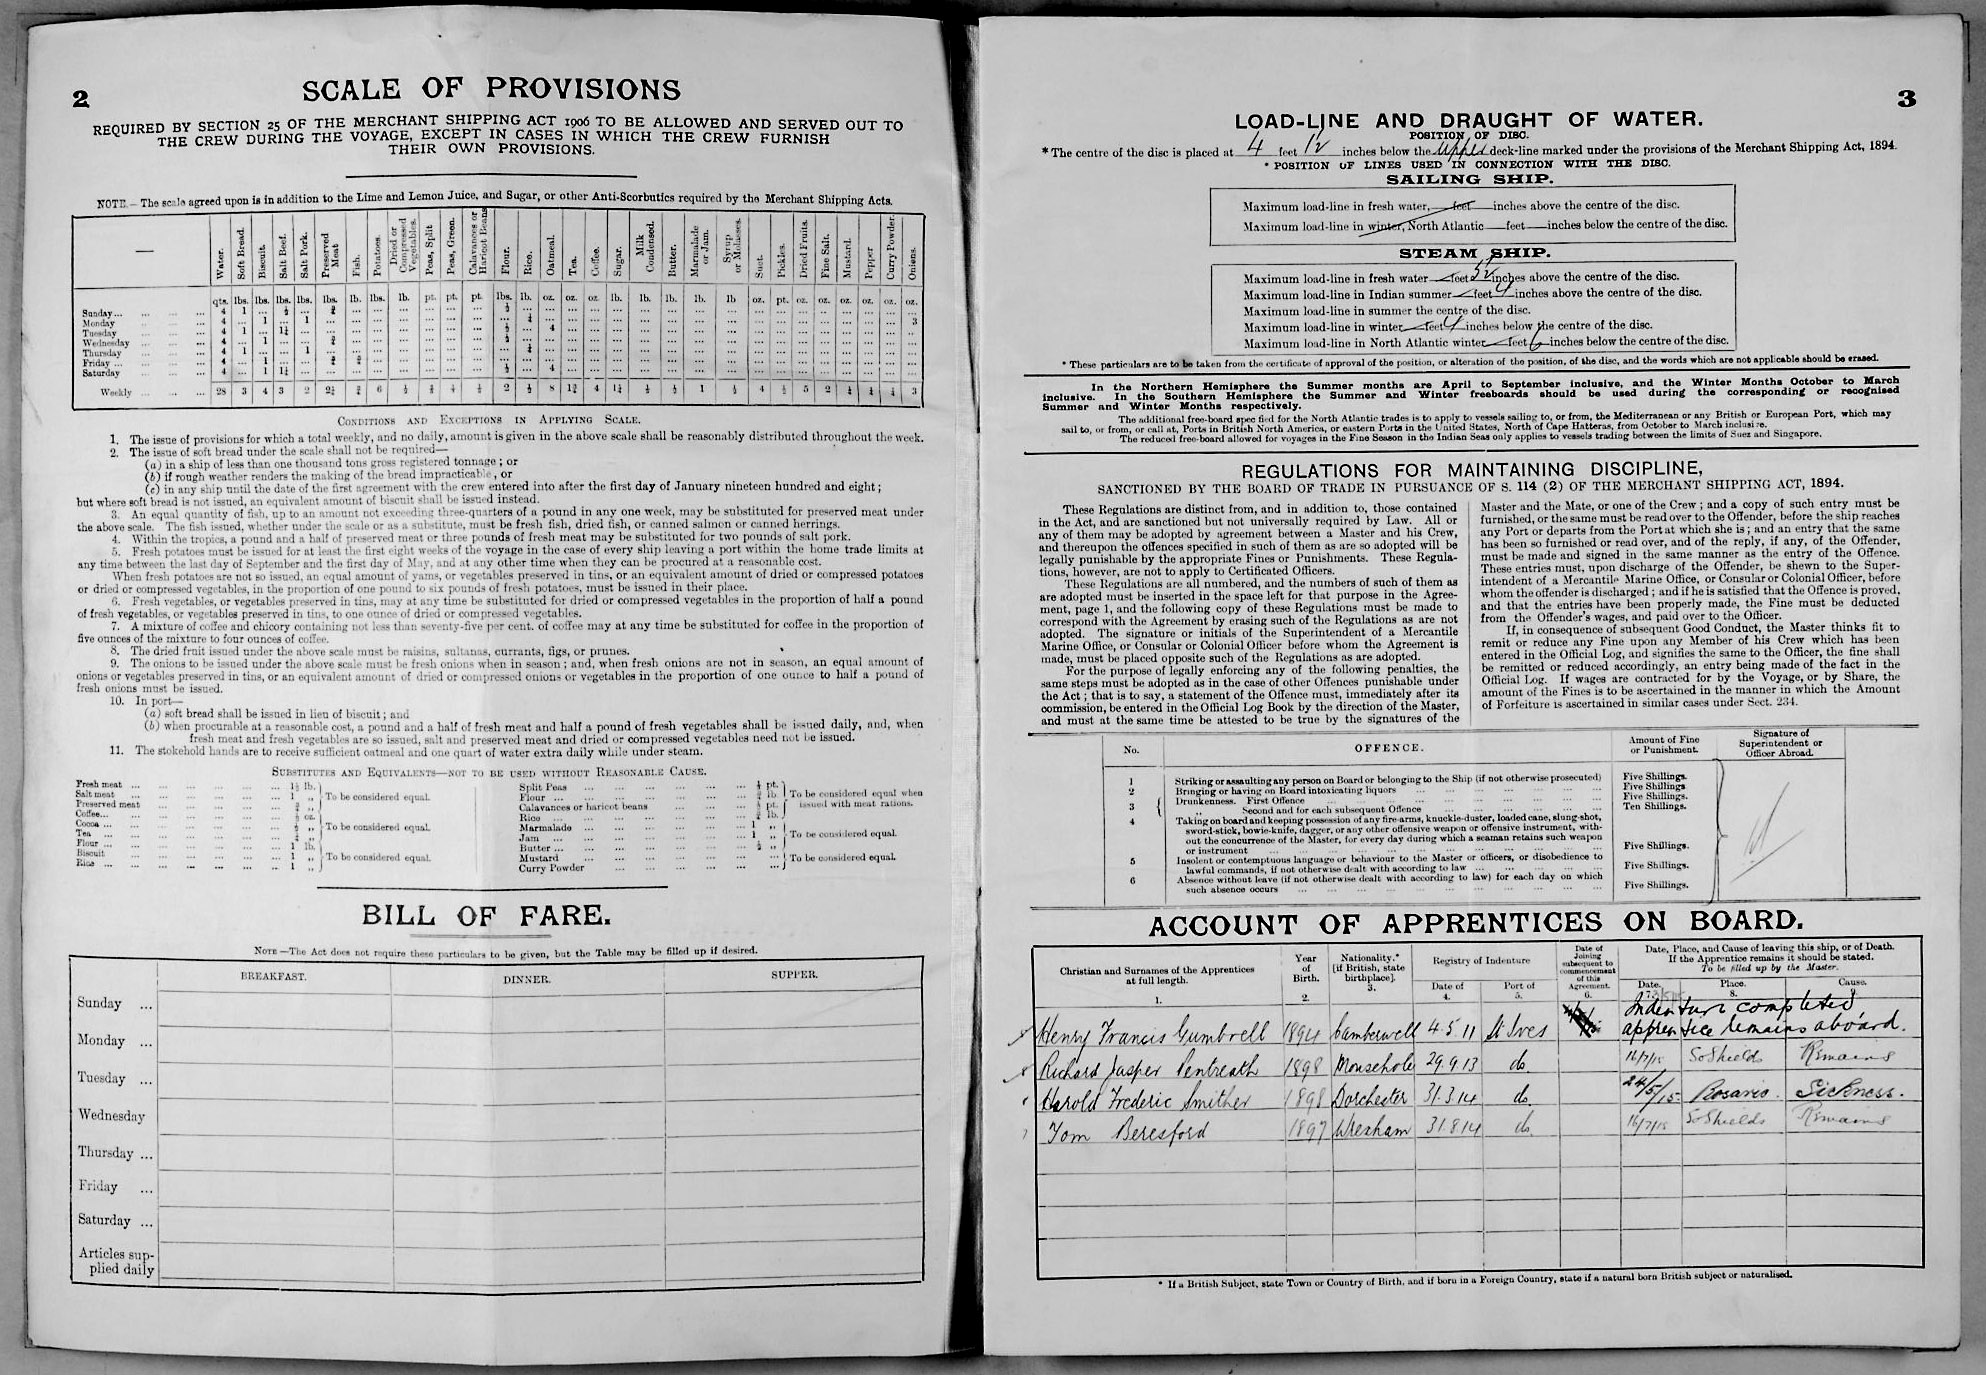 2
SCALE OF PROVISIONS
REQUIRED BY SECTION 25 OF THE MERCHANT SHIPPING ACT 1906 TO BE ALLOWED AND SERVED OUT TO
THE CREW DURING THE VOYAGE, EXCEPT IN CASES IN WHICH THE CREW FURNISH
THEIR OWN PROVISIONS.
NOTE.—The scale agreed upon is in addition to the Lime and Lemon Juice, and Sugar, or other Anti-Scorbutics required by the Merchant Shipping Acts.
— Water. Soft Bread. Biscuit. Salt Beef. Salt Pork. Preserved Meat Fish. Potatoes. Dried or Compressed Vegetables. Peas, Split Peas, Green. Calavances or Haricot Beans Flour. Rice. Oatmeal. Tea. Coffee. Sugar. Milk Condensed. Butter. Marmalade or Jam. Syrup or Molasses. Suet. Pickles. Dried Fruits. Fine Salt. Mustard. Pepper Curry Powder. Onions.
qts. lbs. lbs. lbs. lbs. lbs. lb. lbs. lb. pt. pt. pt. lbs. lb. oz. oz. oz. lb. lb. lb. lb. lb oz. pt. oz. oz. oz. oz. oz. oz.
Sunday... 4 1 ... ½ ... ¾ ... ½
Monday 4 ... 1 ... 1 ... 3
Tuesday 4 1 ... 1¼ ... ½ ... 4
Wednesday 4 ... 1 ... ¾ ... ½
Thursday 4 1 ... 1
Friday ... 4 ... 1
Saturday 4 ... 1 1¼ ... ½ ... 4
Weekly 28 3 4 3 2 2¼ ¾ 6 ½ 2 ½ 8 1¾ 4 1¼ 1 ½ 4 ½ 5 2 ¼ ¼ ¼ 3
CONDITIONS AND EXCEPTIONS IN APPLYING SCALE.
1. The issue of provisions for which a total weekly, and no daily, amount is given in the above scale shall be reasonably distributed throughout the week.
2. The issue of soft bread under the scale shall not be required—
(a) in a ship of less than one thousand tons gross registered tonnage; or
(b) if rough weather renders the making of the bread impracticable, or
(c) in any ship until the date of the first agreement with the crew entered into after the first day of January nineteen hundred and eight;
but where soft bread is not issued, an equivalent amount of biscuit shall be issued instead.
3. An equal quantity of fish, up to an amount not exceeding three-quarters of a pound in any one week, may be substituted for preserved meat under
the above scale. The fish issued, whether under the scale or as a substitute, must be fresh fish, dried fish, or canned salmon or canned herrings.
4. Within the tropics, a pound and a half of preserved meat or three pounds of fresh meat may be substituted for two pounds of salt pork.
5. Fresh potatoes must be issued for at least the first eight weeks of the voyage in the case of every ship leaving a port within the home trade limits at
any time between the last day of September and the first day of May, and at any other time when they can be procured at a reasonable cost.
When fresh potatoes are not so issued, an equal amount of yams, or vegetables preserved in tins, or an equivalent amount of dried or compressed potatoes
or dried or compressed vegetables, in the proportion of one pound to six pounds of fresh potatoes, must be issued in their place.
6. Fresh vegetables, or vegetables preserved in tins, may at any time be substituted for dried or compressed vegetables in the proportion of half a pound
of fresh vegetables, or vegetables preserved in tins, to one ounce of dried or compressed vegetables.
7. A mixture of coffee and chicory containing not less than seventy-five per cent. of coffee may at any time be substituted for coffee in the proportion of
five ounces of the mixture to four ounces of coffee.
8. The dried fruit issued under the above scale must be raisins, sultanas, currants, figs, or prunes.
9. The onions to be issued under the above scale must be fresh onions when in season; and, when fresh onions are not in season, an equal amount of
onions or vegetables preserved in tins, or an equivalent amount of dried or compressed onions or vegetables in the proportion of one ounce to half a pound of
fresh onions must be issued.
10. In port—
(a) soft bread shall be issued in lieu of biscuit; and
(b) when procurable at a reasonable cost, a pound and a half of fresh meat and half a pound of fresh vegetables shall be issued daily, and, when
fresh meat and fresh vegetables are so issued, salt and preserved meat and dried or compressed vegetables need not be issued.
11. The stokehold hands are to receive sufficient oatmeal and one quart of water extra daily while under steam.
SUBSTITUTES AND EQUIVALENTS—NOT TO BE USED WITHOUT REASONABLE CAUSE.
Fresh meat ... 1½ lb.
Salt meat ... 1 „ To be considered equal.
Preserved meat ... ¾ „
Coffee... ½ oz.
Cocoa ... „ To be considered equal.
Tea ... ¼ „
Flour ... 1 lb.
Biscuit 1 „ To be considered equal.
Rice ... 1 „
Split Peas ... pt.
Flour ... lb. To be considered equal when
Calavances or haricot beans ... pt. issued with meat rations.
Rice ... lb.
Marmalade ... 1 „
Jam ... 1 „ To be considered equal.
Butter ... ½ „
Mustard ... To be considered equal.
Curry Powder
BILL OF FARE.
NOTE—The Act does not require these particulars to be given, but the Table may be filled up if desired.
BREAKFAST. DINNER. SUPPER.
Sunday ...
Monday ...
Tuesday ...
Wednesday
Thursday ...
Friday ...
Saturday ...
Articles sup-
plied daily
3
LOAD-LINE AND DRAUGHT OF WATER.
POSITION OF DISC.
* The centre of the disc is placed at 4 feet 1½ inches below the Upper deck-line marked under the provisions of the Merchant Shipping Act, 1894.
* POSITION OF LINES USED IN CONNECTION WITH THE DISC.
SAILING SHIP.
Maximum load-line in fresh water, feet inches above the centre of the disc.
Maximum load-line in winter, North Atlantic feet inches below the centre of the disc.
STEAM SHIP.
Maximum load-line in fresh water feet 5½ inches above the centre of the disc.
Maximum load-line in Indian summer feet 4 inches above the centre of the disc.
Maximum load-line in summer the centre of the disc.
Maximum load-line in winter feet 4 inches below the centre of the disc.
Maximum load-line in North Atlantic winter feet 6 inches below the centre of the disc.
* These particulars are to be taken from the certificate of approval of the position, or alteration of the position, of the disc, and the words which are not applicable should be erased.
In the Northern Hemisphere the Summer months are April to September inclusive, and the Winter Months October to March
inclusive. In the Southern Hemisphere the Summer and Winter freeboards should be used during the corresponding or recognised
Summer and Winter Months respectively.
The additional free-board specified for the North Atlantic trades is to apply to vessels sailing to, or from, the Mediterranean or any British or European Port, which may
sail to, or from, or call at, Ports in British North America, or eastern Ports in the United States, North of Cape Hatteras, from October to March inclusive.
The reduced free-board allowed for voyages in the Fine Season in the Indian Seas only applies to vessels trading between the limits of Suez and Singapore.
REGULATIONS FOR MAINTAINING DISCIPLINE,
SANCTIONED BY THE BOARD OF TRADE IN PURSUANCE OF S. 114 (2) OF THE MERCHANT SHIPPING ACT, 1894.
These Regulations are distinct from, and in addition to, those contained
in the Act, and are sanctioned but not universally required by Law. All or
any of them may be adopted by agreement between a Master and his Crew,
and thereupon the offences specified in such of them as are so adopted will be
legally punishable by the appropriate Fines or Punishments. These Regula-
tions, however, are not to apply to Certificated Officers.
These Regulations are all numbered, and the numbers of such of them as
are adopted must be inserted in the space left for that purpose in the Agree-
ment, page 1, and the following copy of these Regulations must be made to
correspond with the Agreement by erasing such of the Regulations as are not
adopted. The signature or initials of the Superintendent of a Mercantile
Marine Office, or Consular or Colonial Officer before whom the Agreement is
made, must be placed opposite such of the Regulations as are adopted.
For the purpose of legally enforcing any of the following penalties, the
same steps must be adopted as in the case of other Offences punishable under
the Act; that is to say, a statement of the Offence must, immediately after its
commission, be entered in the Official Log Book by the direction of the Master,
and must at the same time be attested to be true by the signatures of the
Master and the Mate, or one of the Crew; and a copy of such entry must be
furnished, or the same must be read over to the Offender, before the ship reaches
any Port or departs from the Port at which she is; and an entry that the same
has been so furnished or read over, and of the reply, if any, of the Offender,
must be made and signed in the same manner as the entry of the Offence.
These entries must, upon discharge of the Offender, be shewn to the Super-
intendent of a Mercantile Marine Office, or Consular or Colonial Officer, before
whom the offender is discharged; and if he is satisfied that the Offence is proved,
and that the entries have been properly made, the Fine must be deducted
from the Offender's wages, and paid over to the Officer.
If, in consequence of subsequent Good Conduct, the Master thinks fit to
remit or reduce any Fine upon any Member of his Crew which has been
entered in the Official Log, and signifies the same to the Officer, the fine shall
be remitted or reduced accordingly, an entry being made of the fact in the
Official Log. If wages are contracted for by the Voyage, or by Share, the
amount of the Fines is to be ascertained in the manner in which the Amount
of Forfeiture is ascertained in similar cases under Sect. 234.
No. OFFENCE. Amount of Fine or Punishment. Signature of Superintendent or Officer Abroad.
1 Striking or assaulting any person on Board or belonging to the Ship (if not otherwise prosecuted) Five Shillings.
2 Bringing or having on Board intoxicating liquors ... Five Shillings
3 Drunkenness. First Offence ... Five Shillings.
„ Second and for each subsequent Offence ... Ten Shillings.
4 Taking on board and keeping possession of any fire-arms, knuckle-duster, loaded cane, slung-shot,
sword-stick, bowie-knife, dagger, or any other offensive weapon or offensive instrument, with-
out the concurrence of the Master, for every day during which a seaman retains such weapon
or instrument ... Five Shillings.
5 Insolent or contemptuous language or behaviour to the Master or officers, or disobedience to
lawful commands, if not otherwise dealt with according to law ... Five Shillings.
6 Absence without leave (if not otherwise dealt with according to law) for each day on which
such absence occurs ... Five Shillings.
ACCOUNT OF APPRENTICES ON BOARD.
Christian and Surnames of the Apprentices at full length. 1. Year of Birth. 2. Nationality.* [if British, state birthplace]. 3. Registry of Indenture Date of 4. Port of 5. Date of Joining subsequent to commencement of this Agreement. 6. Date, Place, and Cause of leaving this ship, or of Death. If the Apprentice remains it should be stated. To be filled up by the Master. Date. 7. Place. 8. Cause. 9.
Henry Francis Gumbrell 1894 Camberwell 4.5.11 St Ives Indenture completed
apprentice remains aboard.
Richard Jasper Pentreath 1898 Mousehole 29.9.13 do. 16/7/15 So Shields Remains
Harold Frederic Smither 1898 Dorchester 31.3.14 do. 24/5/15 Rosario. Sickness.
Tom Beresford 1897 Wrexham 31.8.14 do. 16/7/15 So Shields Remains
* If a British Subject, state Town or Country of Birth, and if born in a Foreign Country, state if a natural born British subject or naturalised.